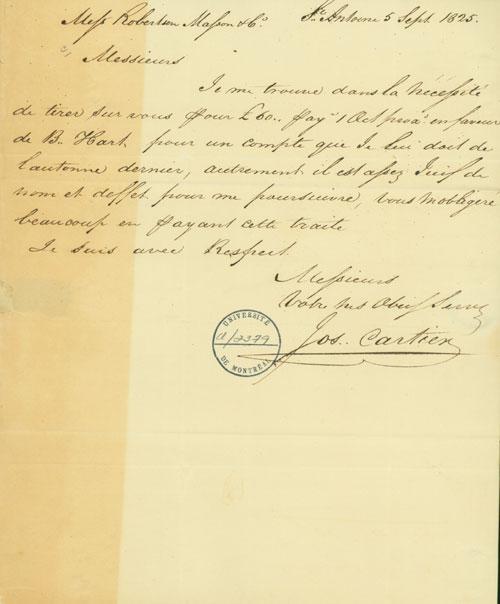 Mess Robertson Masson & Co. St. Antoine 5 Sept. 1825.
Messieurs
Je me trouve dans la Nécéssité
de tirer sur vous pour £60.. pay. 1 Oct prox. en faveur
de B. Hart pour un compte que Je lui dois de
l'autonne dernier, autrement il est assez Juif de
nom et deffet pour me poursuivre, vous mobligere
beaucoup en payant cette traite
Je suis avec Respect
Messieurs
Votre tres Obeiss Serv
Jos. Cartier
UNIVERSITÉ
A/2379
DE MONTRÉAL